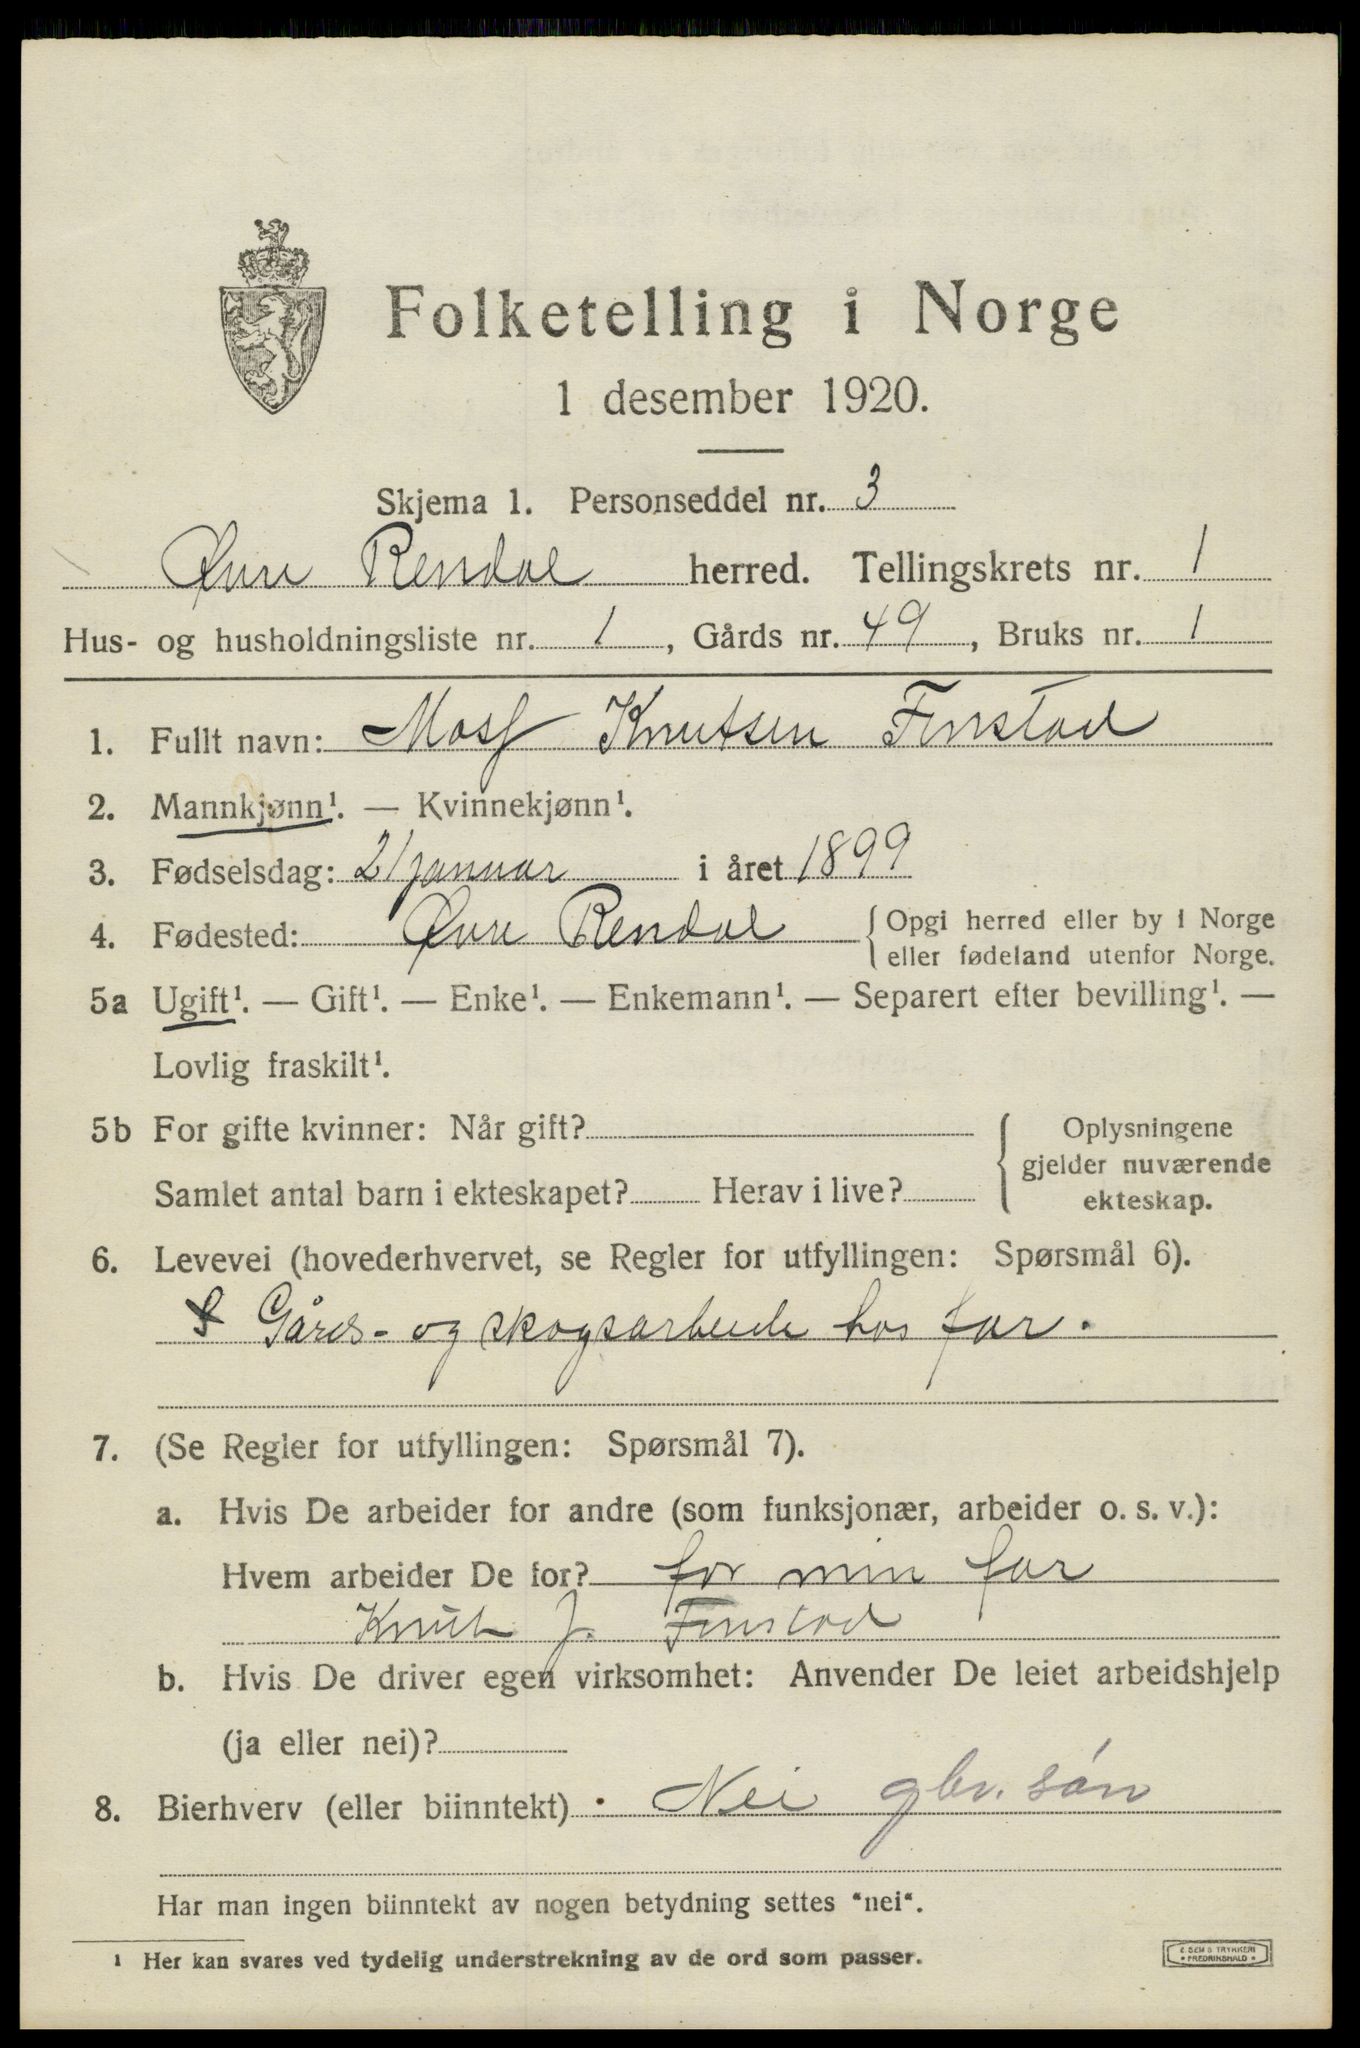 Folketelling i Norge
1 desember 1920.
Skjema 1. Personseddel nr. 3
Øvre Rendal herred. Tellingskrets nr. 1
Hus- og husholdningsliste nr. 1, Gårds nr. 49, Bruks nr. 1
1. Fullt navn: Knutsen Finstad
2. Mannkjønn¹. — Kvinnekjønn¹.
3. Fødselsdag: 21 januar i året 1899
4. Fødested: Øvre Rendal { Opgi herred eller by i Norge
eller fødeland utenfor Norge.
5a Ugift¹. — Gift¹. — Enke¹. — Enkemann¹. — Separert efter bevilling¹. —
Lovlig fraskilt¹.
5b For gifte kvinner: Når gift?
Samlet antal barn i ekteskapet? Herav i live?
{ Oplysningene
gjelder nuværende
ekteskap.
6. Levevei (hovederhvervet, se Regler for utfyllingen: Spørsmål 6).
Gårds- og skogsarbeide hos far.
7. (Se Regler for utfyllingen: Spørsmål 7).
a. Hvis De arbeider for andre (som funksjonær, arbeider o. s. v.):
Hvem arbeider De for? for min far
Knut J. Finstad
b. Hvis De driver egen virksomhet: Anvender De leiet arbeidshjelp
(ja eller nei)?
8. Bierhverv (eller biinntekt) Nei gbr. søn
Har man ingen biinntekt av nogen betydning settes "nei".
¹ Her kan svares ved tydelig understrekning av de ord som passer.
E. SEM'S TRYKKERI
* FREDRIKSHALD *